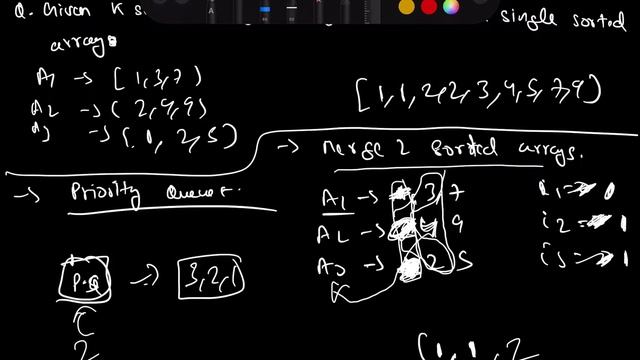 Q. Given K s single sorted
arrays
A1 -> [1,3,7)
A2 -> (2,4,9)
A3 -> (1, 2,5)
[1,1,2,2,3,4,5,7,9)
-> Merge 2 sorted arrays.
-> Priority Queue.
A1 -> 3, 7
A2 -> 9
A3 -> 2 5
i1 => 1
i2 => 1
i3 => 1
P.Q -> 3,2,1
2
(1,1,2